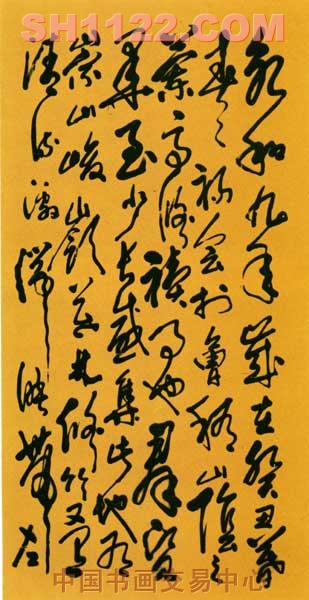 SH1122.COM
永和九年歲在癸丑暮
春之初會於會稽山陰之
蘭亭修禊事也羣賢
畢至少長咸集此地有
崇山峻嶺茂林修竹又有
清流激湍映帶左
中国书画交易中心